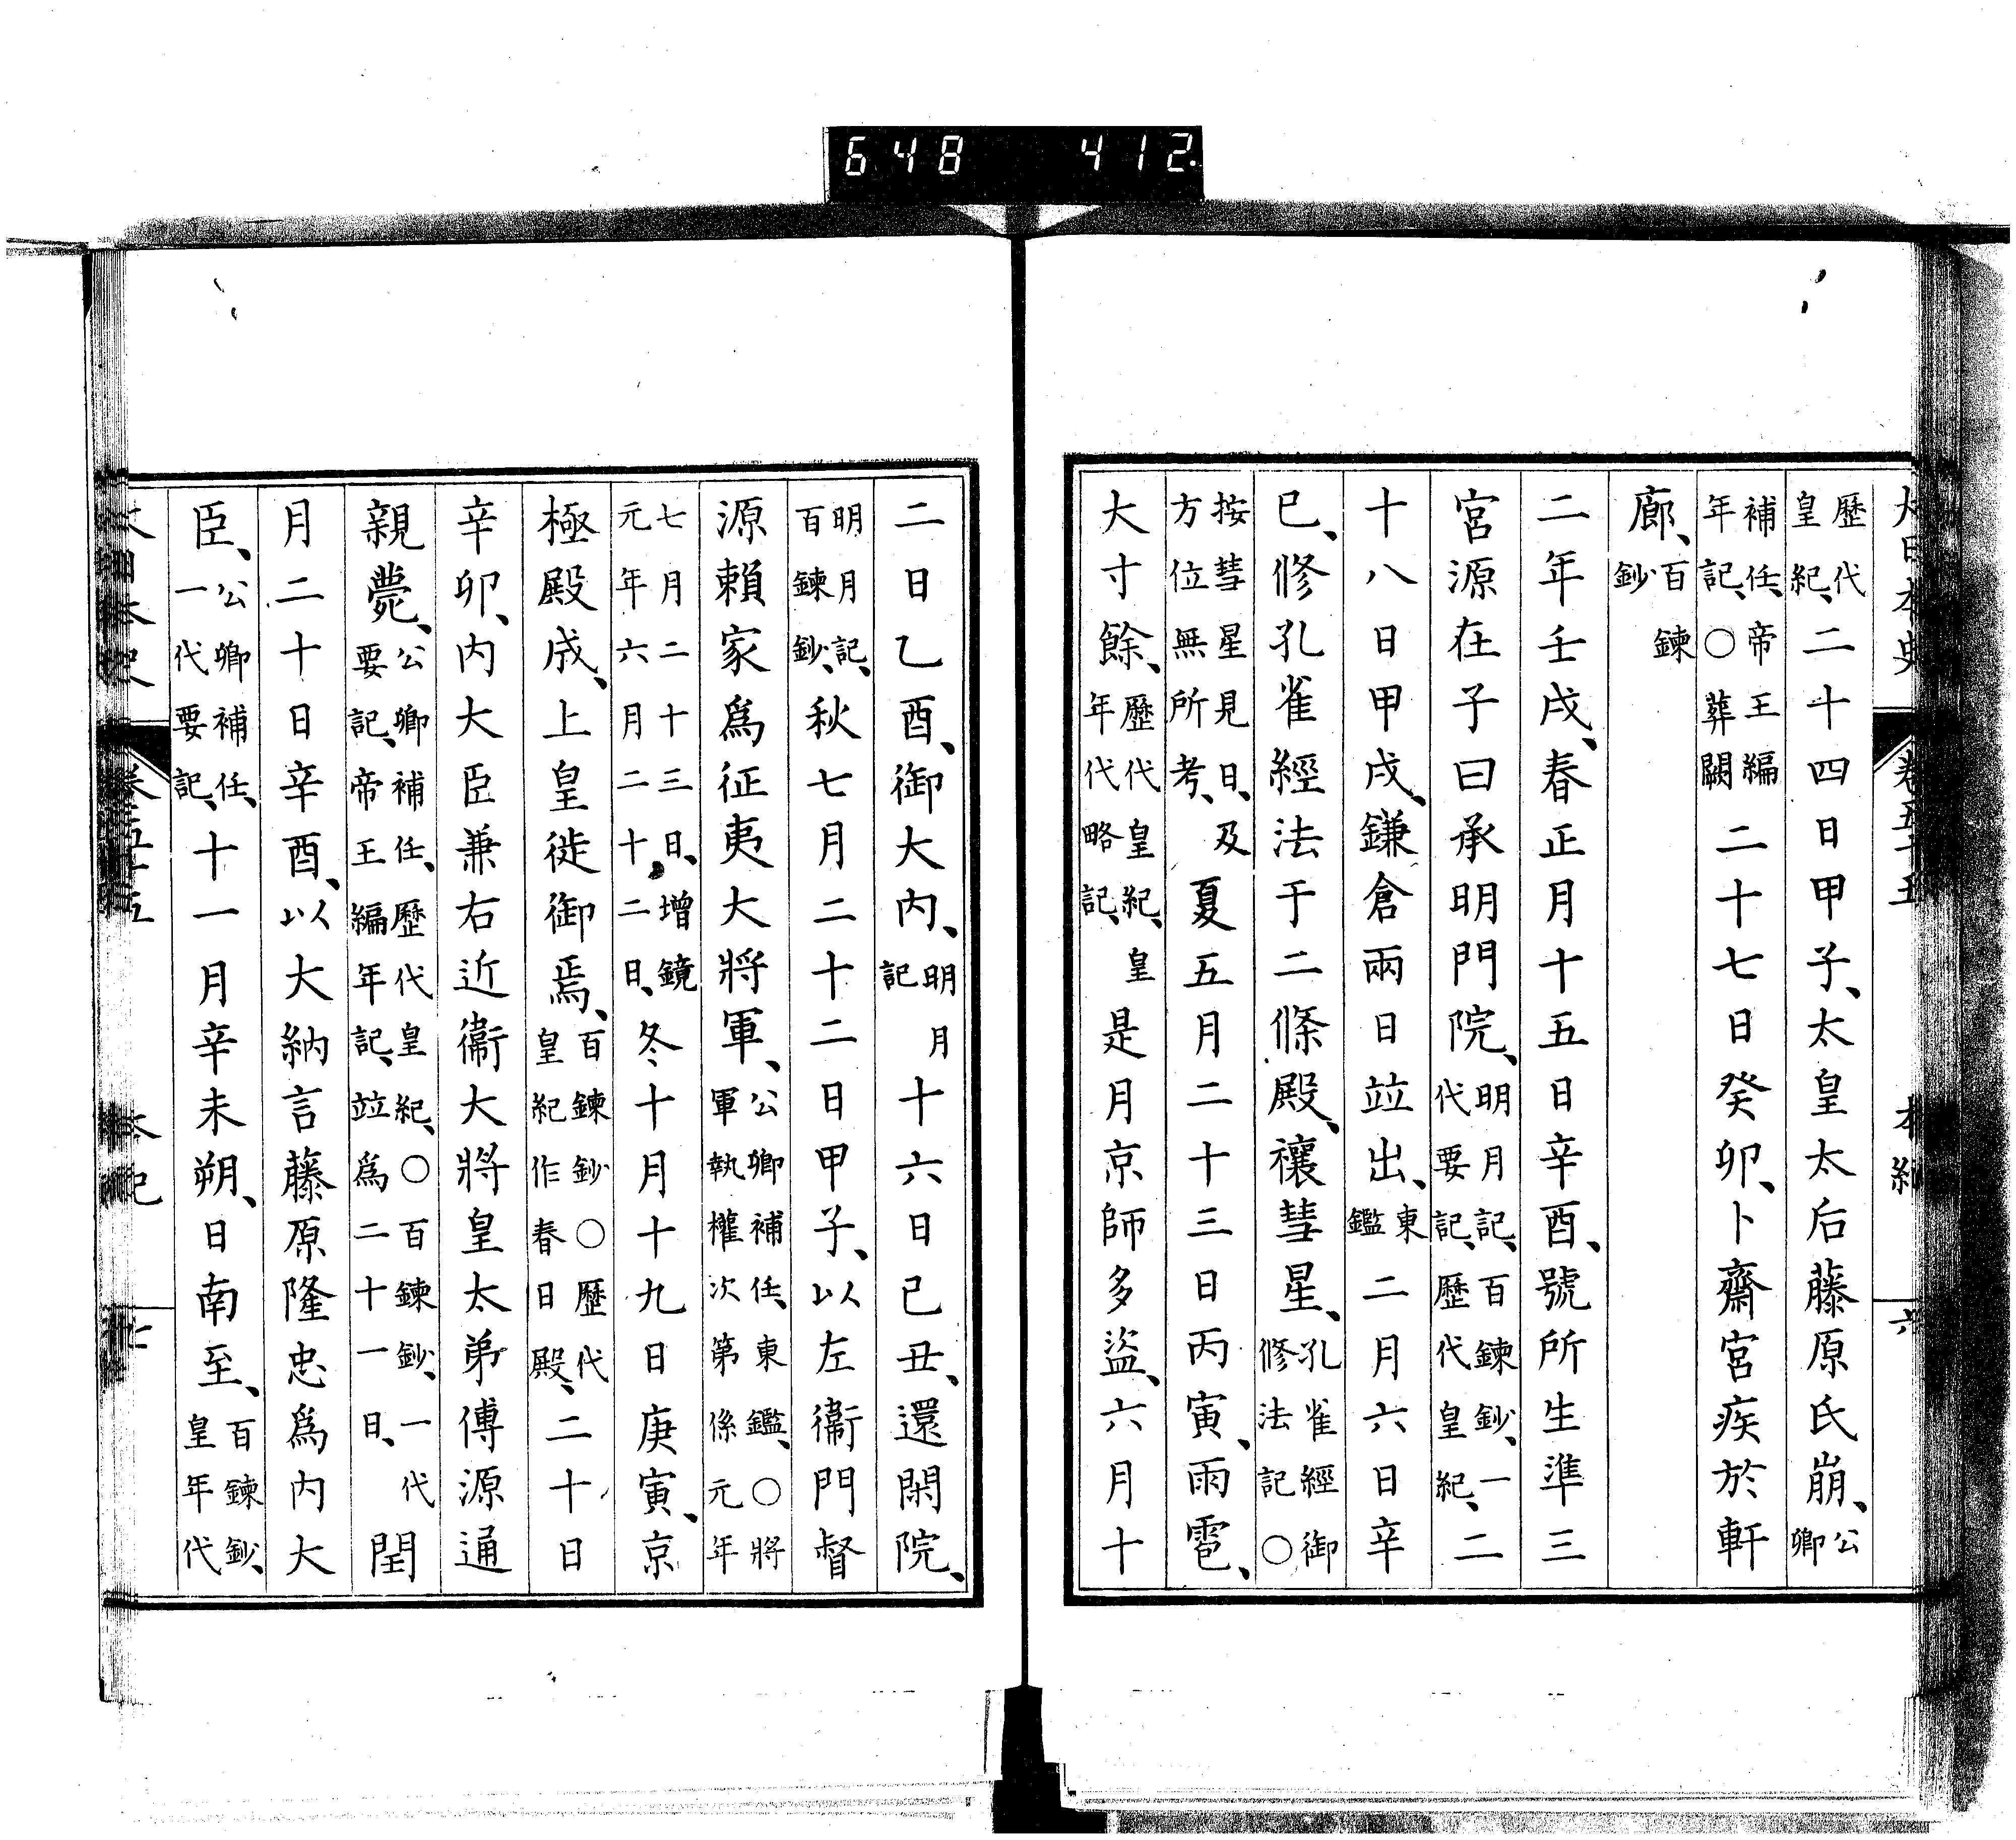 大日本史 卷五十五 本紀 六
歷代皇紀、二十四日甲子、太皇太后藤原氏崩、公卿
補任、帝王編年記、○葬闕二十七日癸卯、卜齋宮疾於軒
廊、百鍊鈔
二年壬戌、春正月十五日辛酉、號所生準三
宮源在子曰承明門院、明月記、百鍊鈔、一代要記、歷代皇紀、二
十八日甲戌、鎌倉兩日竝出、東鑑二月六日辛
巳、修孔雀經法于二條殿、禳彗星、孔雀經御修法記○
按彗星見日、及方位無所考、夏五月二十三日丙寅、雨雹、
大寸餘、歷代皇紀、皇年代略記、是月京師多盜、六月十
二日乙酉、御大內、明月記十六日己丑、還閑院、
明月記、百鍊鈔、秋七月二十二日甲子、以左衞門督
源賴家爲征夷大將軍、公卿補任、東鑑、○將軍執權次第係元年
七月二十三日、增鏡元年六月二十二日、冬十月十九日庚寅、京
極殿成、上皇徙御焉、百鍊鈔○歷代皇紀作春日殿、二十日
辛卯、內大臣兼右近衞大將皇太弟傅源通
親薨、公卿補任、歷代皇紀、○百鍊鈔、一代要記、帝王編年記、竝爲二十一日、閏
月二十日辛酉、以大納言藤原隆忠爲內大
臣、公卿補任、一代要記、十一月辛未朔、日南至、百鍊鈔、皇年代
大日本史 卷五十五 本紀 七